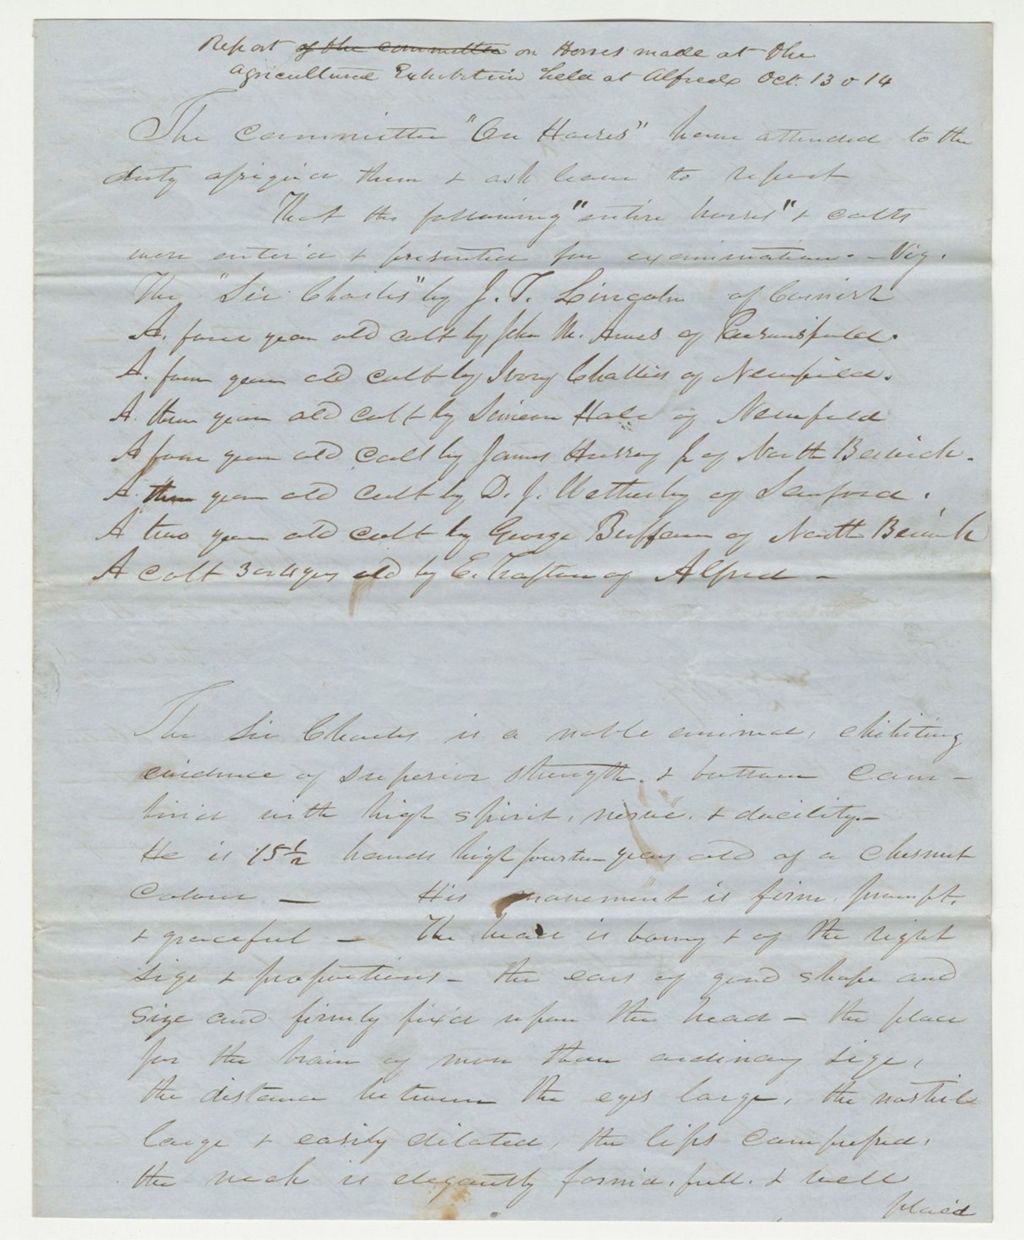 Report of the committee on Horses made at the
Agricultural Exhibition held at Alfred Oct. 13 & 14
The Committee "On Horses" have attended to the
duty assigned them & ask leave to report
That the following "entire horses" & colts
were entered & presented for examination. - Viz.
The "Sir Charles" by J. T. Lincoln of Cornish
A. four year old colt by John M. Ames of Parsonsfield.
A. four year old colt by Ivory Challies of Newfield.
A. three year old colt by Simeon Hale of Newfield
A four year old colt by James Hussey Jr of North Berwick.
A. three year old colt by D. J. Wetherby of Sanford.
A two year old colt by George Buffum of North Berwick
A colt 3 or 4 yrs old by E. Trafton of Alfred -
The Sir Charles is a noble animal, exhibiting
evidence of superior strength, & bottom com-
bined with high spirit, nerve, & docility. -
He is 15½ hands high fourteen years old of a chesnut
Colour - His movement is firm, prompt,
& graceful - The head is bony & of the right
size & proportions - the ears of good shape and
size and firmly fix'd upon the head - the place
for the brain of more than ordinary size,
the distance between the eyes large, the nostrils
large & easily dilated, the lips compressed,
the neck is elegantly formed, full, & well
placed